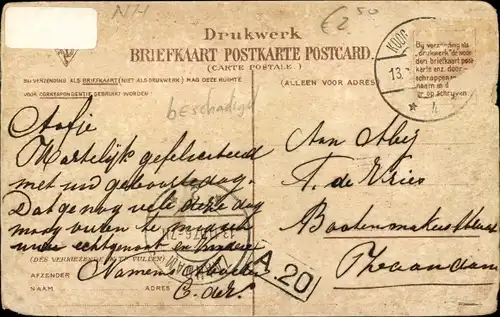 NH
€2 50
Drukwerk
BRIEFKAART POSTKARTE POSTCARD
(CARTE POSTALE.)
BIJ VERZENDING ALS BRIEFKAART (NIET ALS DRUKWERK) MAG DEZE RUIMTE
VOOR CORRESPONDENTIE GEBRUIKT WORDEN
(ALLEEN VOOR ADRES)
Bij verzending als
"drukwerk" de voor
den briefkaart post
karte enz. door-
schrappen
naam en
er op schrijven
KOOG
13.
4
beschadigd
Aafje
Hartelijk gefeliciteerd
met uw geboortedag.
Dat ge nog vele deze dag
mag
echtgenoot en kinderen
(DEZE VERKIEZENDE IN TE VULLEN)
AFZENDER Namens
NAAM ADRES
Aan Mej
T. de Vries
Zaandam
A 20